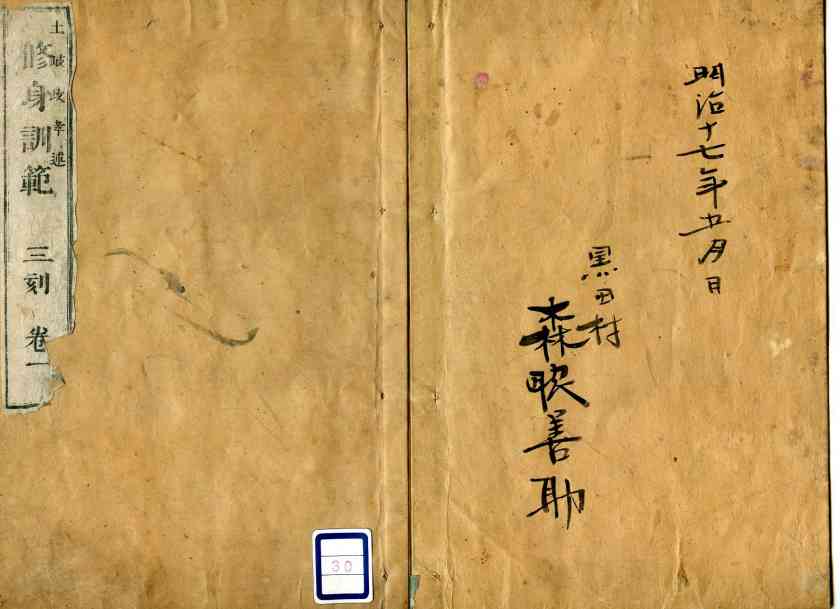 土岐政孝述
修身訓範 三刻 巻一
30
明治十七年五月日
黒田村
森 善助